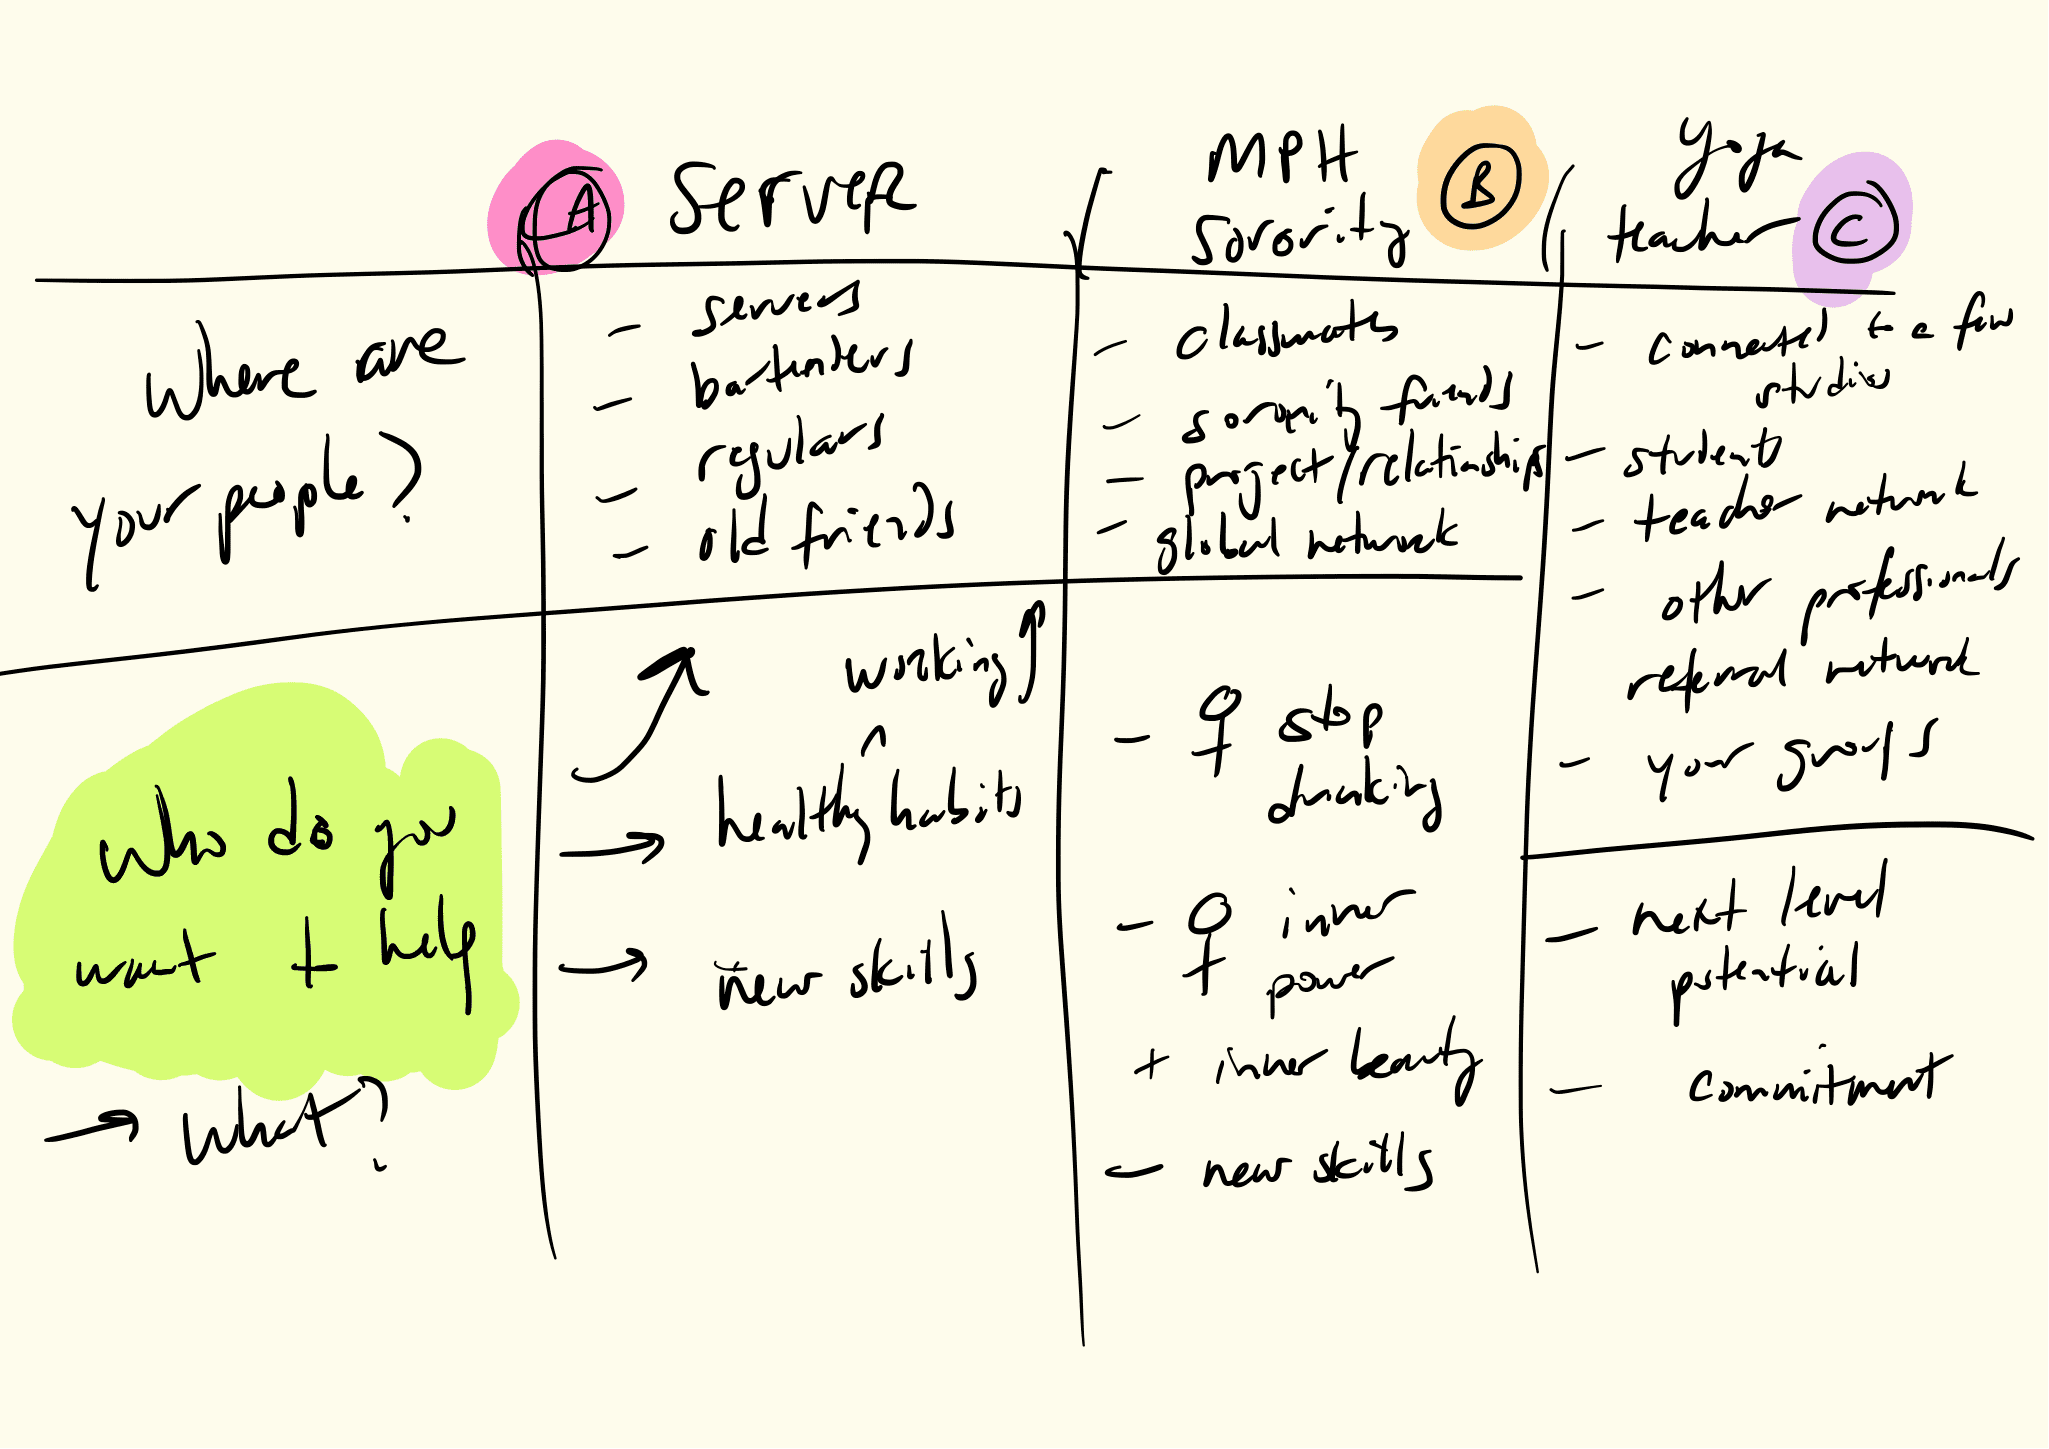 A Server
MPH
Sorority
B
Yoga
teacher
C
Where are
your people?
- servers
- bartenders
- regulars
- old friends
- classmates
- sorority friends
- project/relationships
- global network
- connected to a few
studios
- students
- teacher network
- other professionals
referral network
- your groups
Who do you
want to help
→ What?
working
healthy ^ habits
→ new skills
- ♀ stop
drinking
- ♀ inner
power
+ inner beauty
- new skills
- next level
potential
- commitment